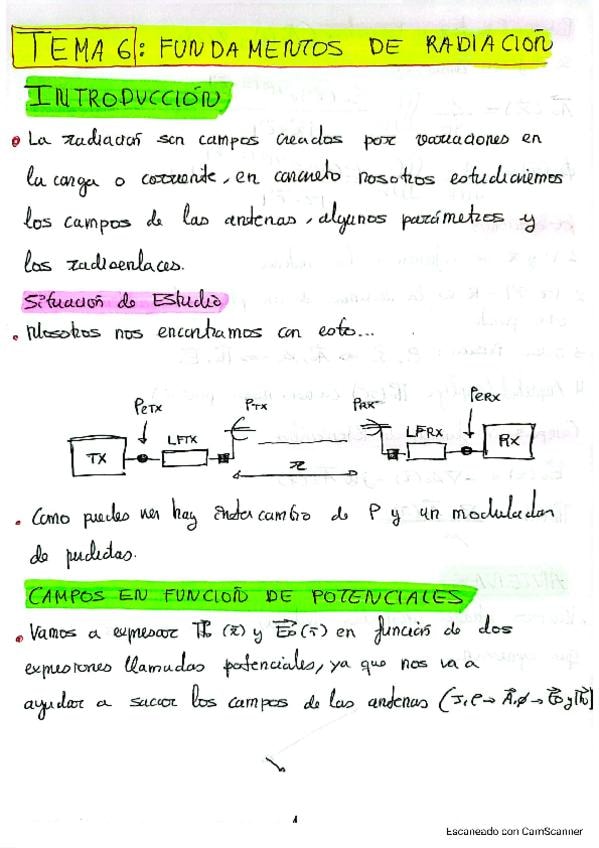 TEMA 6: FUNDAMENTOS DE RADIACIÓN
INTRODUCCIÓN
• La radiación son campos creados por variaciones en
la carga o corriente, en concreto nosotros estudiaremos
los campos de las antenas, algunos parámetros y
los radioenlaces.
Situación de Estudio
• Nosotros nos encontramos con esto...
PETX PTX PRX PERX
TX LFTX LFRX RX
r
• Como puedes ver hay intercambio de P y un modulador
de perdidas.
CAMPOS EN FUNCIÓN DE POTENCIALES
• Vamos a expresar (r) y (r) en función de dos
expresiones llamadas potenciales, ya que nos va a
ayudar a sacar los campos de las antenas (J, ρ → A, ϕ →
1
Escaneado con CamScanner